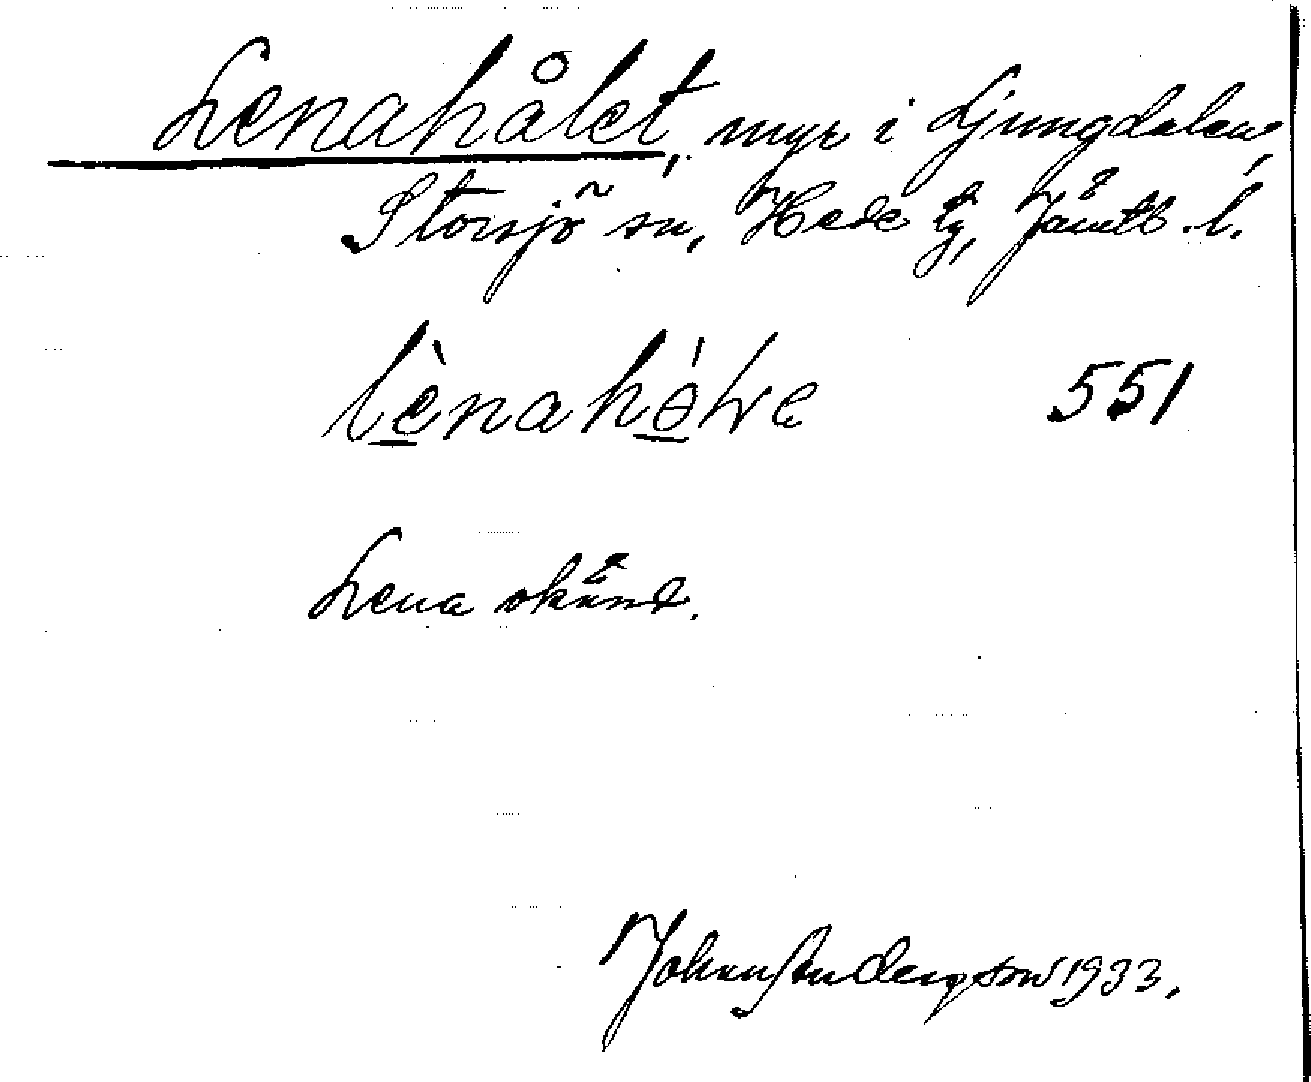 Lenahålet, myr i Ljungdalen,
Storsjö sn, Hede tg, Jämtl. l.
lènahóLe 551
Lena okänd.
Johan Andersson 1933.